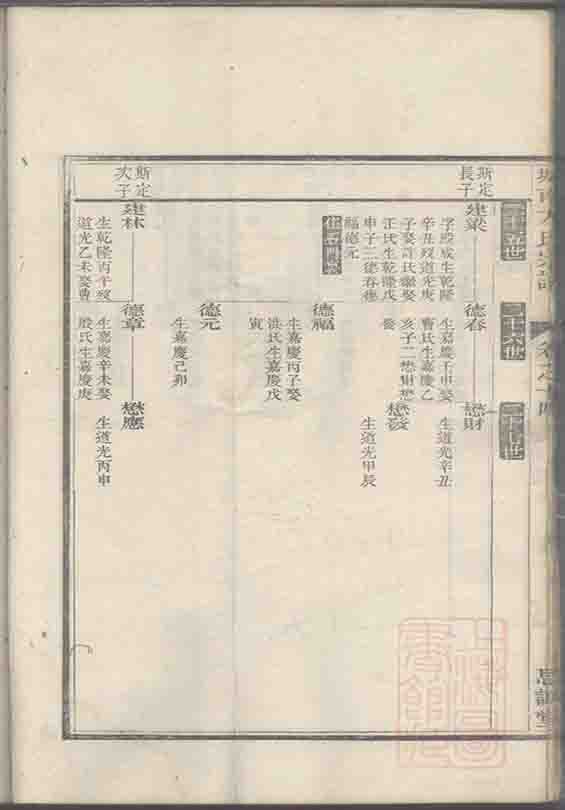 二十五世
二十六世
二十七世
斯定
長子
建梁
字殿成生乾隆
辛丑歿道光庚
子娶許氏繼娶
汪氏生乾隆戊
申子三德春德
福德元
德春
生嘉慶壬申娶
曹氏生嘉慶乙
亥子二懋財懋
發
懋財
生道光辛丑
懋發
生道光甲辰
德福
生嘉慶丙子娶
洪氏生嘉慶戊
寅
德元
生嘉慶己卯
斯定
次子
建林
生乾隆丙午歿
道光乙未娶曹
德章
生嘉慶辛未娶
殷氏生嘉慶庚
懋應
生道光丙申
上海圖
書館藏